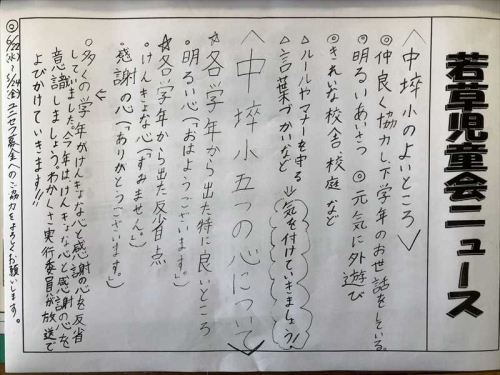 若草児童会ニュース
<中埣小のよいところ>
◎仲良く協力し、下学年のお世話をしている。
◎明るいあいさつ ◎元気に外遊び
◎きれいな校舎、校庭 など
△ルールやマナーを守る
△言葉づかいなど
⇒気を付けていきましょう!
<中埣小五つの心について>
☆各学年から出た特に良いところ
明るい心(おはようございます。)
☆各学年から出た反省点
・けんきょな心(すみません。)
・感謝の心(ありがとうございます。)
↓
○多くの学年がけんきょな心と感謝の心を反省
していました。今年はけんきょな心と感謝の心を
意識しましょう。わかくさ実行委員が放送で
よびかけていきます!!
◎6/22(水)~6/24(金)ユニセフ募金へのご協力をよろしくお願いします。